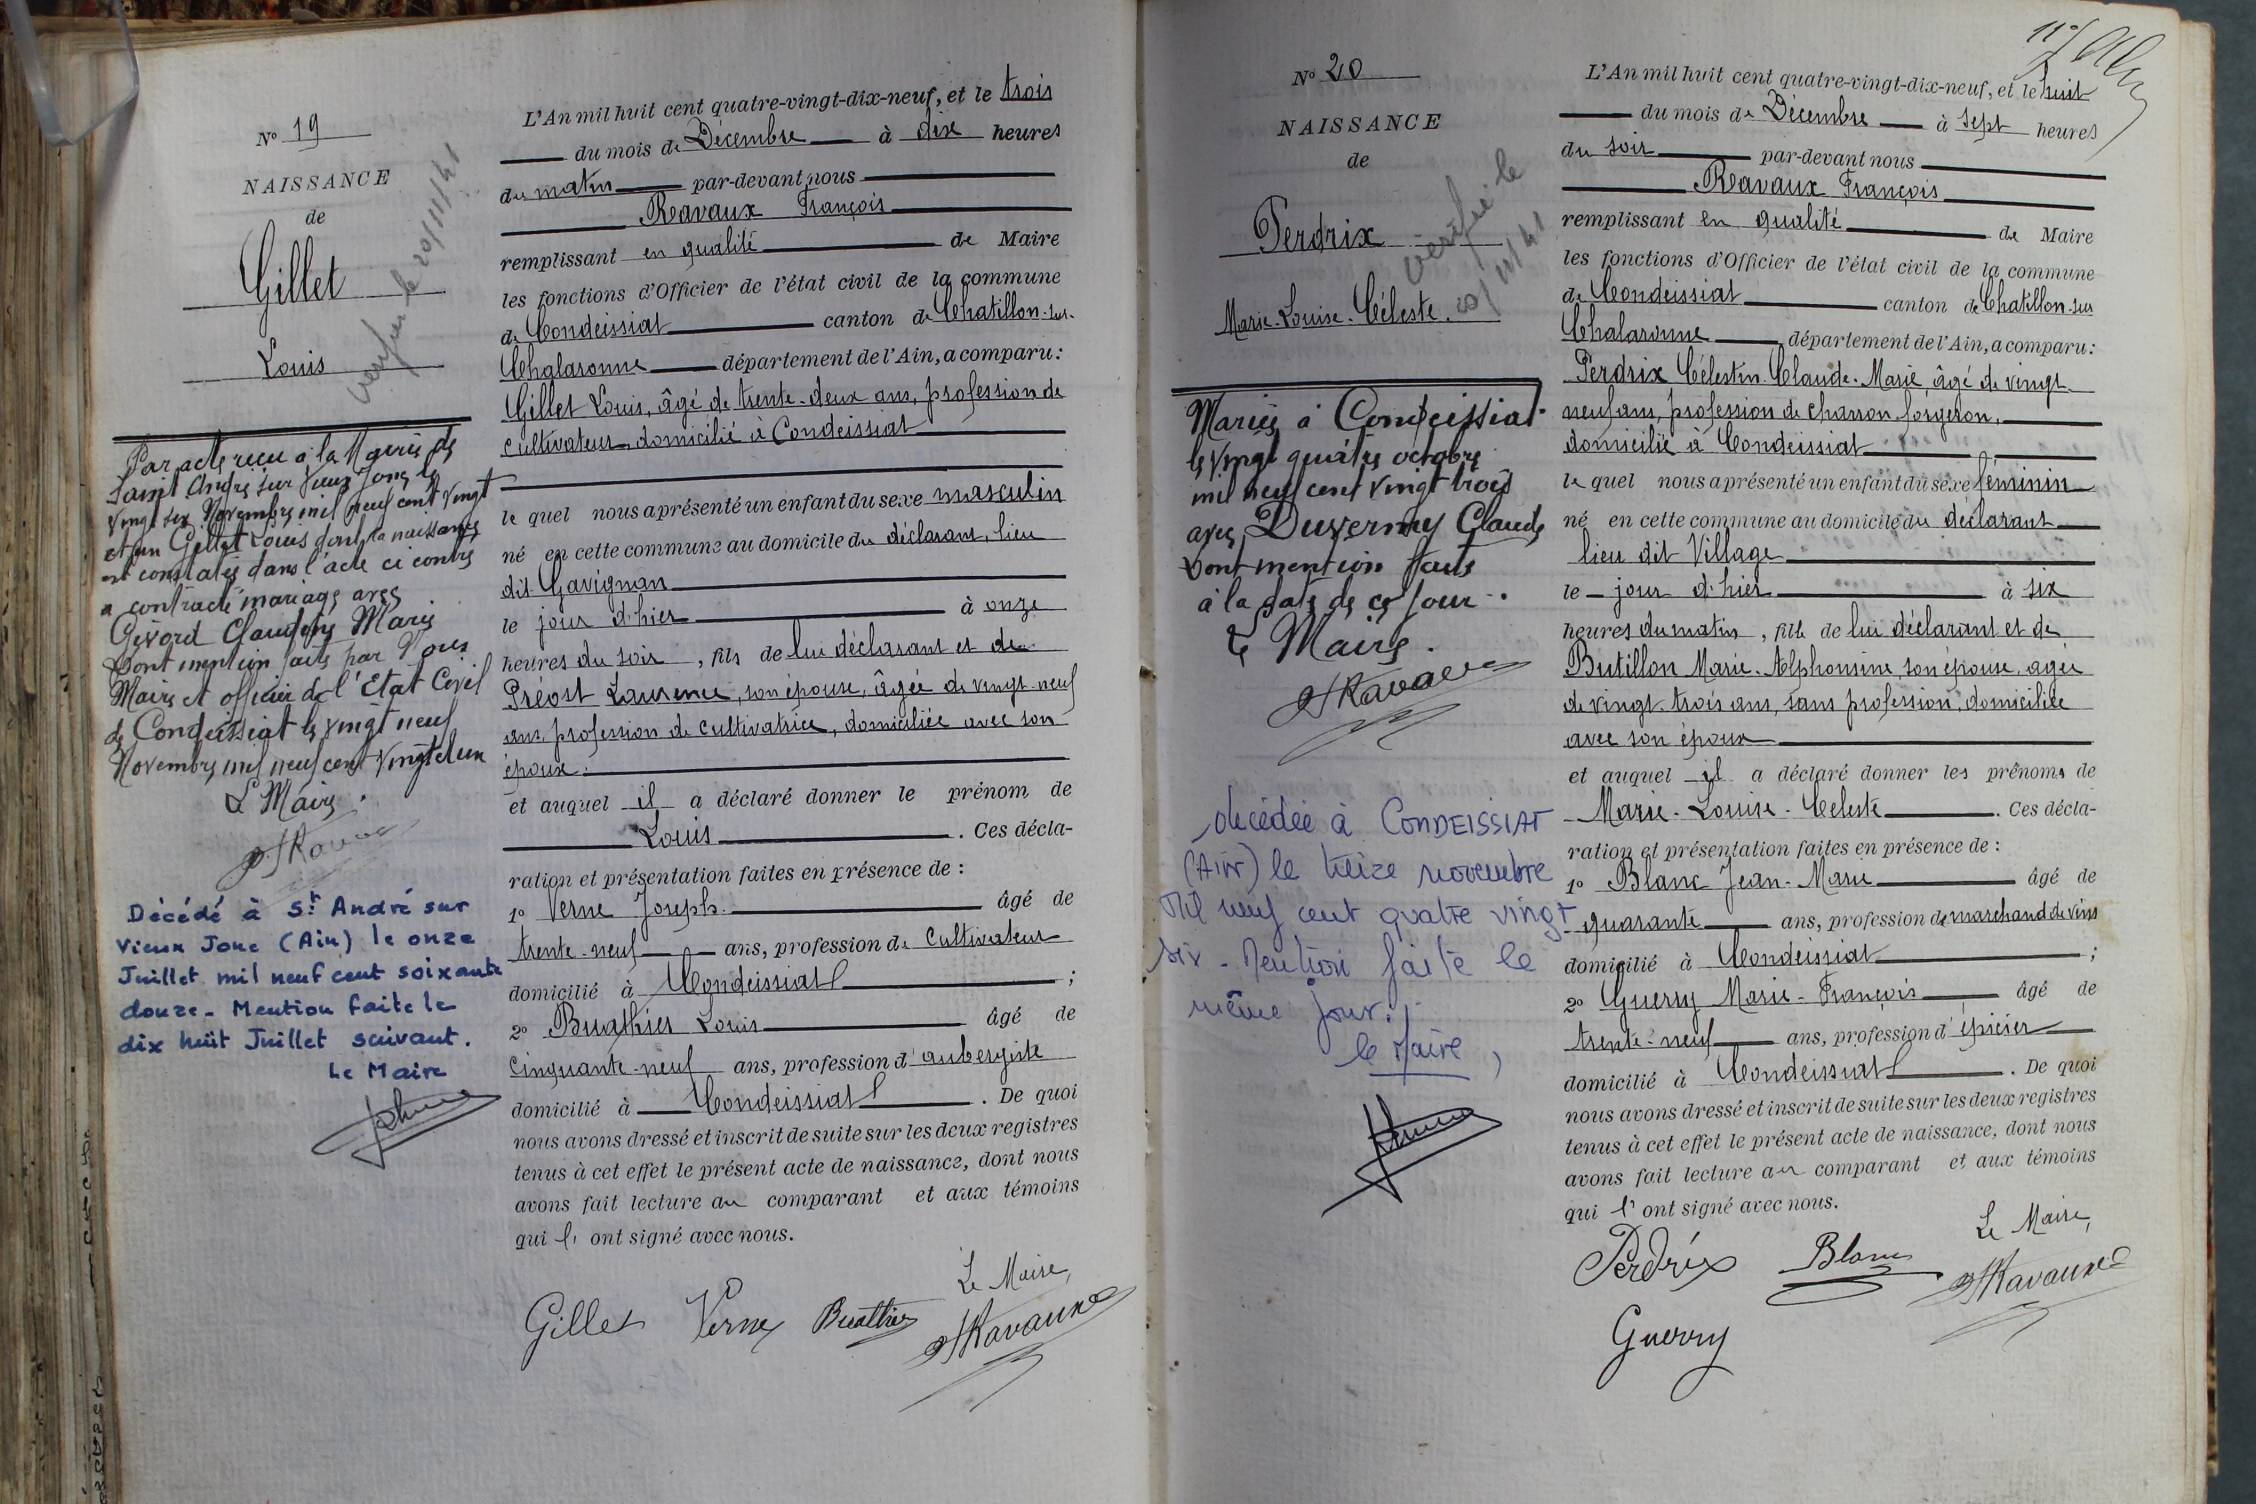 N° 19
NAISSANCE
de
Gillet
Louis
vérifié le 20/11/41
Par acte reçu à la Mairie de
Saint André sur Vieux Jonc le
vingt six Novembre mil neuf cent vingt
et un Gillet Louis dont la naissance
est constatée dans l'acte ci contre
a contracté mariage avec
Claudine Marie
Dont mention faite par Nous
Maire et officier de l'Etat Civil
de Condeissiat le vingt neuf
Novembre mil neuf cent vingt et un
Le Maire.
Ravaux
Décédé à St André sur
Vieux Jonc (Ain) le onze
Juillet mil neuf cent soixante
douze - Mention faite le
dix huit Juillet suivant.
Le Maire
L'An mil huit cent quatre-vingt-dix-neuf, et le trois
du mois de Décembre à dix heures
du matin par-devant nous
Ravaux François
remplissant en qualité de Maire
les fonctions d'Officier de l'état civil de la commune
de Condeissiat canton de Chatillon-sur-
Chalaronne département de l'Ain, a comparu :
Gillet Louis, âgé de trente-deux ans, profession de
cultivateur, domicilié à Condeissiat
le quel nous a présenté un enfant du sexe masculin
né en cette commune au domicile du déclarant, lieu
dit Gavignan
le jour d'hier à onze
heures du soir, fils de lui déclarant et de
Préost Laurence, son épouse, âgée de vingt-neuf
ans, profession de cultivatrice, domiciliée avec son
époux.
et auquel il a déclaré donner le prénom de
Louis . Ces décla-
ration et présentation faites en présence de :
1° Verne Joseph âgé de
trente-neuf ans, profession de cultivateur
domicilié à Condeissiat ;
2° Buathier Louis âgé de
cinquante-neuf ans, profession d'aubergiste
domicilié à Condeissiat . De quoi
nous avons dressé et inscrit de suite sur les deux registres
tenus à cet effet le présent acte de naissance, dont nous
avons fait lecture au comparant et aux témoins
qui l' ont signé avec nous.
Le Maire,
Gillet Verne Buathier Ravaux
N° 20
NAISSANCE
de
Perdrix
Marie-Louise-Céleste.
vérifié le
20/11/41
Mariée à Condeissiat
le vingt quatre octobre
mil neuf cent vingt trois
avec Duvernay Claude
Dont mention faite
à la date de ce jour.
Le Maire.
Ravaux
décédée à CONDEISSIAT
(AIN) le treize novembre
Mil neuf cent quatre vingt
six - Mention faite le
même jour.
le Maire,
L'An mil huit cent quatre-vingt-dix-neuf, et le huit
du mois de Décembre à sept heures
du soir par-devant nous
Ravaux François
remplissant en qualité de Maire
les fonctions d'Officier de l'état civil de la commune
de Condeissiat canton de Chatillon-sur
Chalaronne département de l'Ain, a comparu :
Perdrix Célestin-Claude-Marie, âgé de vingt-
neuf ans, profession de charron-forgeron,
domicilié à Condeissiat
le quel nous a présenté un enfant du sexe féminin
né en cette commune au domicile du déclarant
lieu dit Village
le jour d'hier à six
heures du matin, fille de lui déclarant et de
Butillon Marie-Alphonsine, son épouse, agée
de vingt-trois ans, sans profession, domiciliée
avec son époux
et auquel il a déclaré donner les prénoms de
Marie-Louise-Céleste . Ces décla-
ration et présentation faites en présence de :
1° Blanc Jean-Marie âgé de
quarante ans, profession de marchand de vins
domicilié à Condeissiat ;
2° Guerry Marie-François âgé de
trente-neuf ans, profession d'épicier
domicilié à Condeissiat . De quoi
nous avons dressé et inscrit de suite sur les deux registres
tenus à cet effet le présent acte de naissance, dont nous
avons fait lecture au comparant et aux témoins
qui l' ont signé avec nous.
Le Maire,
Perdrix Blanc Ravaux
Guerry